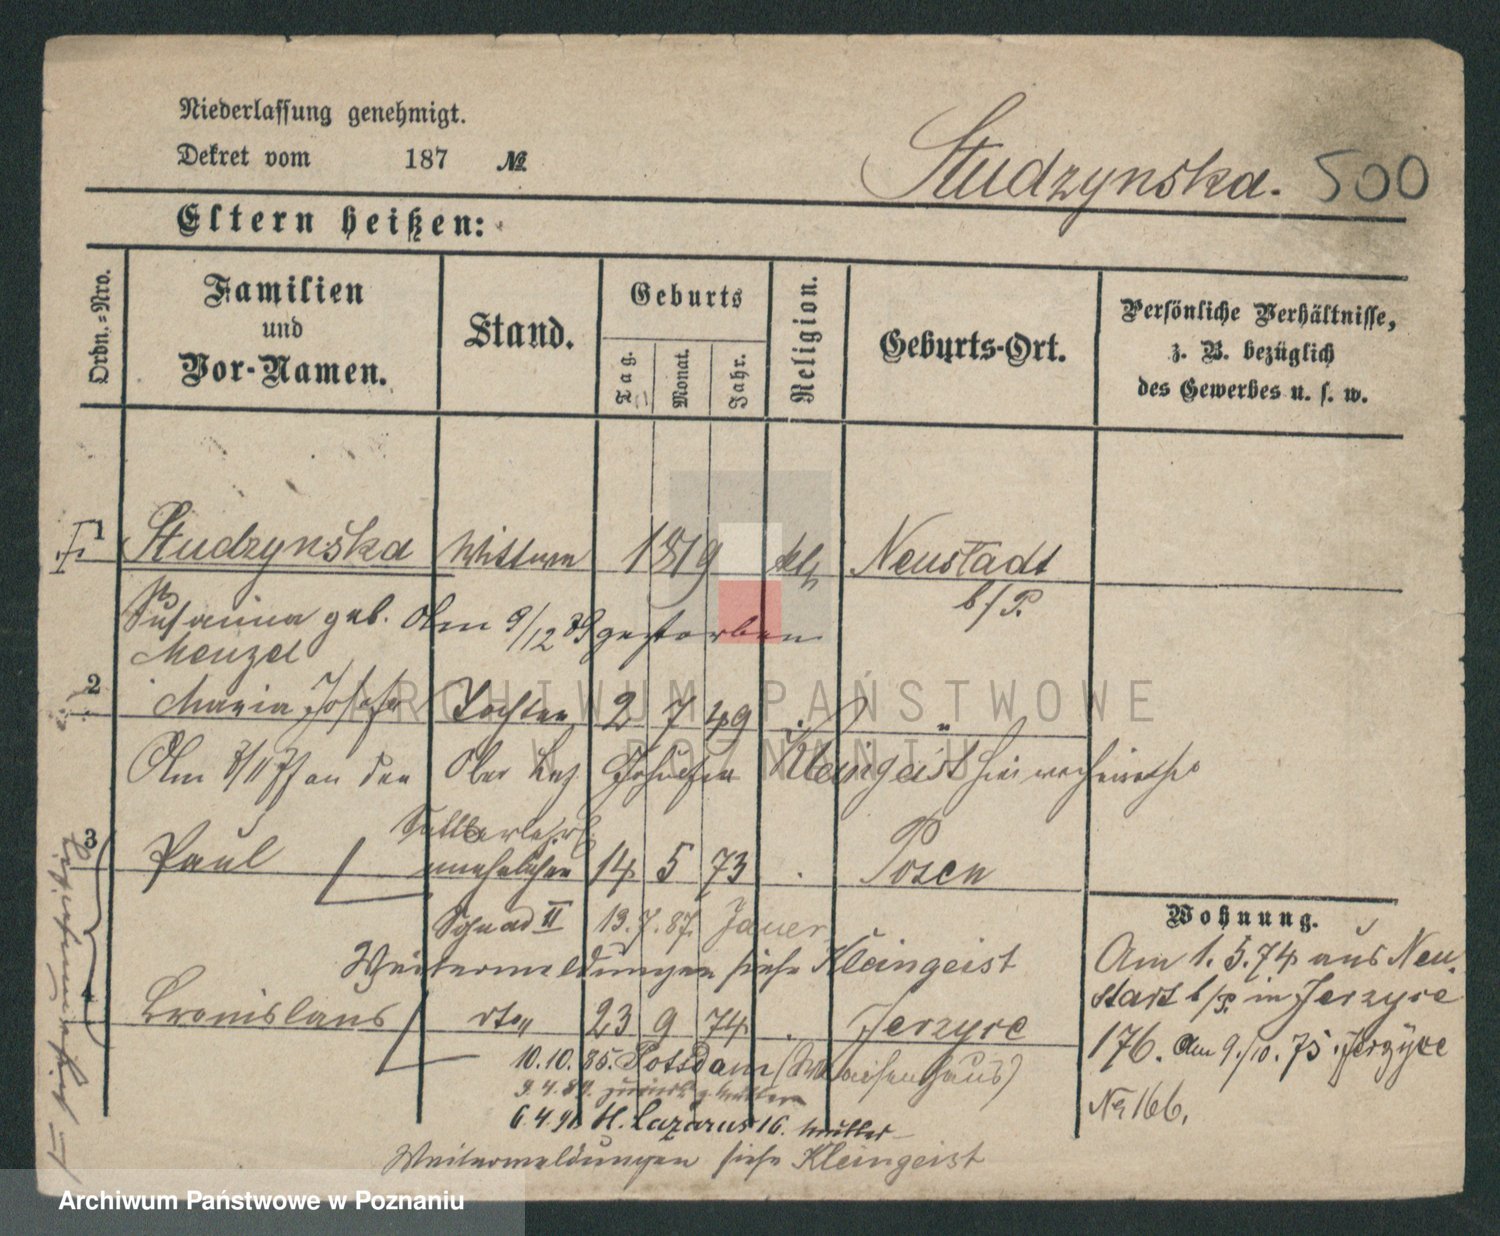 Niederlassung genehmigt.
Dekret vom 187 №
Studzynska. 500
Eltern heißen:
Ordn.-Nro.
Familien und Vor-Namen.
Stand.
Geburts
Tag. Monat. Jahr.
Religion.
Geburts-Ort.
Persönliche Verhältnisse,
z. B. bezüglich
des Gewerbes u. s. w.
1 Studzynska Wittwe 1819 kth Neustadt
b/P.
Susanna geb. Am 9/12 89 gestorben
Menzel
2 Maria Josefa Tochter 2 7 49 "
Am an den Kleingeist hier verheirathet
3 Paul unehelichen 14 5 73 . Posen
Sohn ad II 13.7.87. Jauer
Weitermeldungen siehe Kleingeist
4 Bronislaus dto 23 9 74 . Jerzyce
10.10.85. Potsdam (Waisenhaus)
9.4.89. zurück z. Mutter
6.4.91. St. Lazarus 16. Mutter
Weitermeldungen siehe Kleingeist
Wohnung.
Am 1.5.74 aus Neu-
stadt b/P. in Jerzyce
176. Am 9./10.75 Jerzyce
No 166.
ARCHIWUM PAŃSTWOWE
W POZNANIU
Archiwum Państwowe w Poznaniu